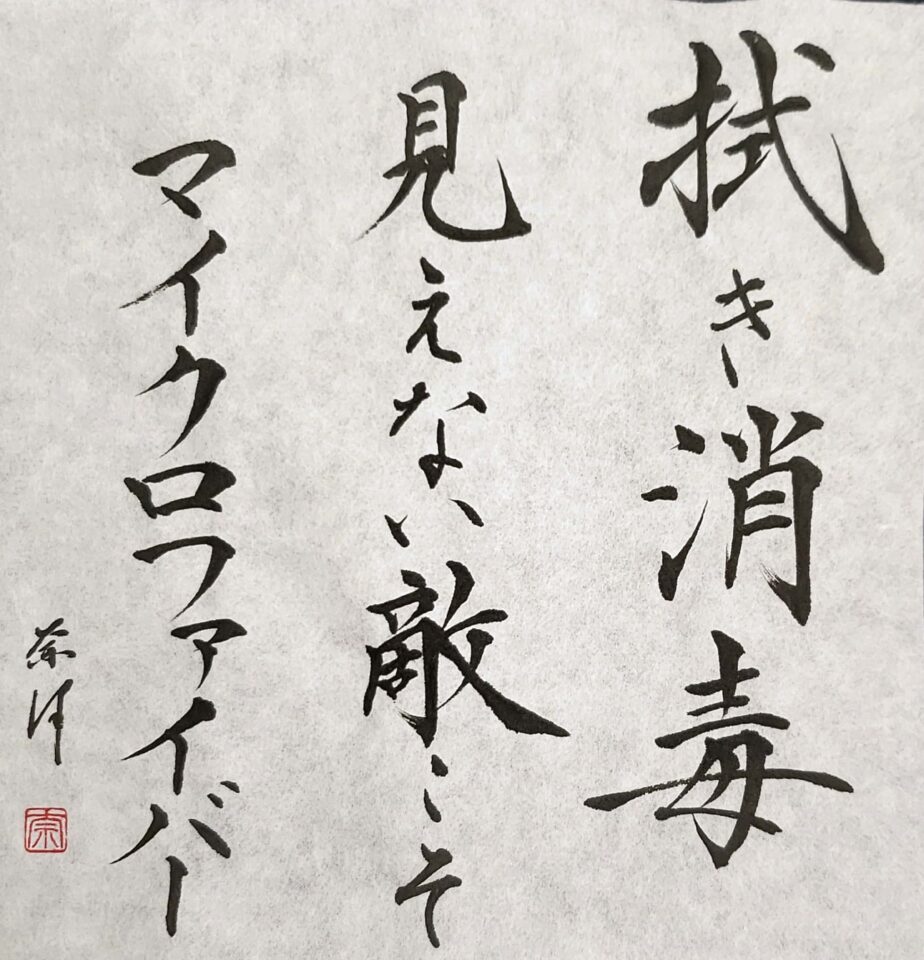 拭き消毒
見えない敵こそ
マイクロファイバー